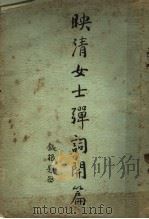 映清女士彈詞開篇